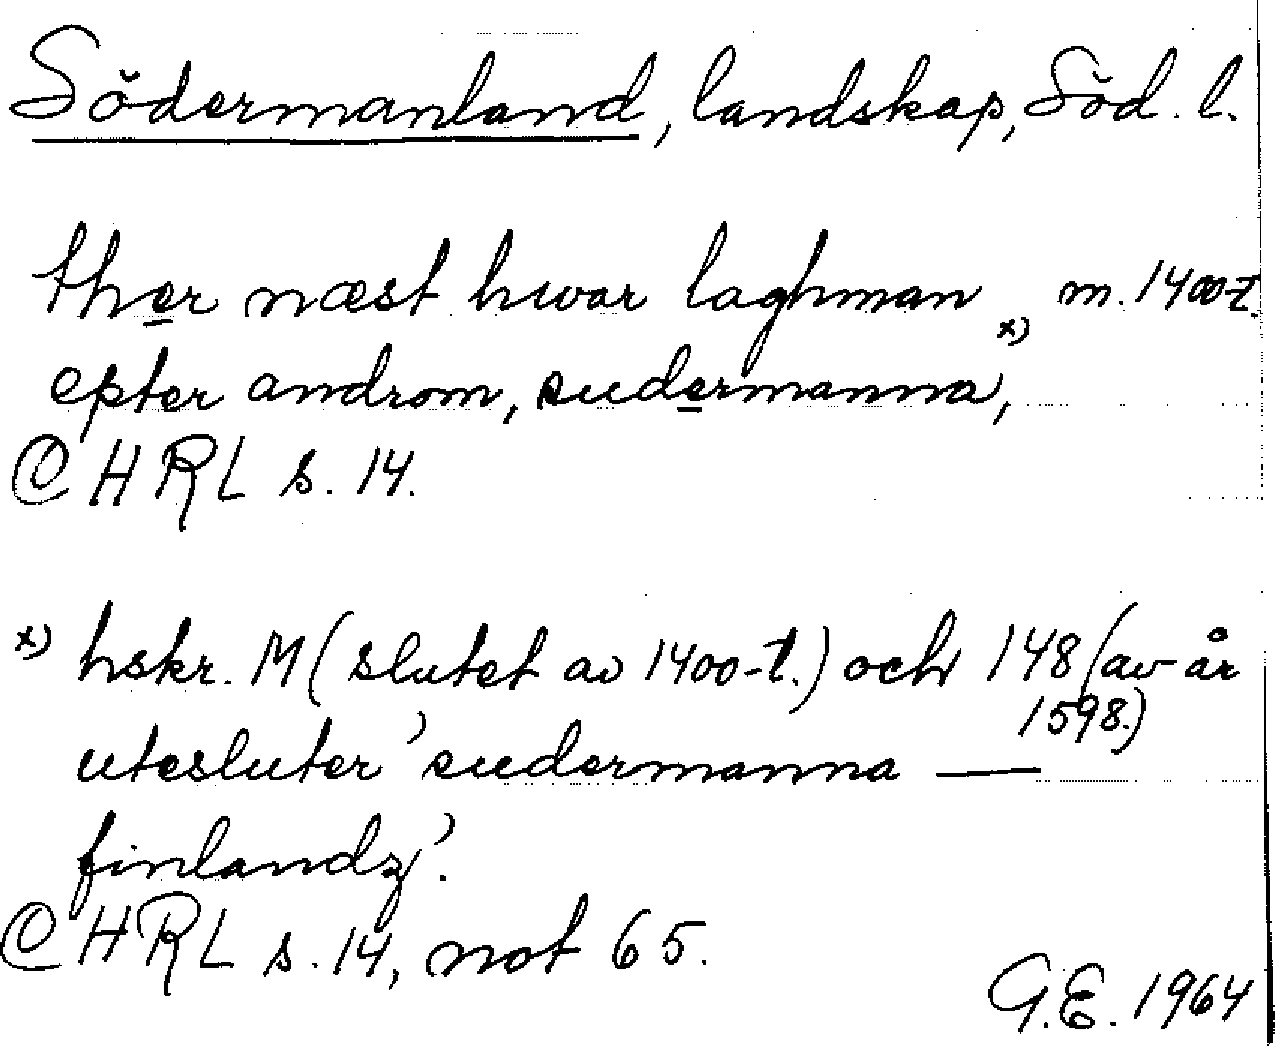 Södermanland, landskap, Söd. l.
ther næst hwar laghman m. 1400-t.
epter androm, sudermanna, x)
CHRL s. 14.
x) hskr. M (slutet av 1400-t.) och 148 (av år
1598.)
utesluter 'sudermanna —
finlandz'.
CHRL s. 14, not 65.
G.E. 1964